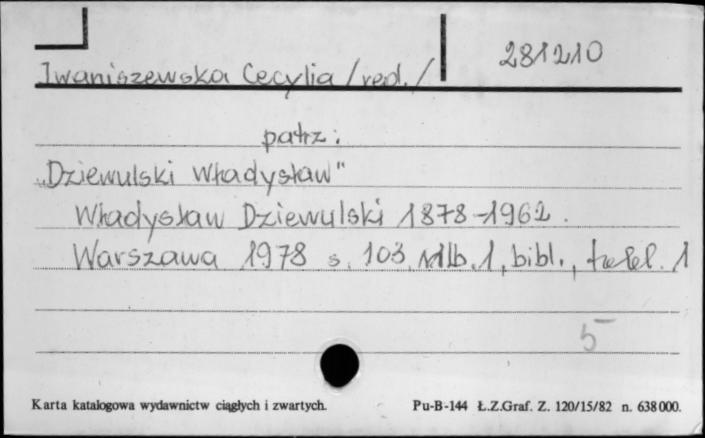 Iwaniszewska Cecylia /red./ 281210
patrz:
„Dziewulski Władysław"
Władysław Dziewulski 1878-1962.
Warszawa 1978 s. 103, nlb. 1, bibl., 1
5
Karta katalogowa wydawnictw ciągłych i zwartych. Pu-B-144 Ł.Z.Graf. Z. 120/15/82 n. 638000.